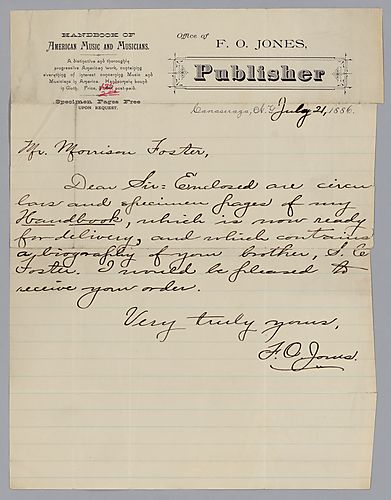 HANDBOOK OF
AMERICAN MUSIC AND MUSICIANS.
A distinctive and thoroughly
progressive American work, containing
everything of interest concerning Music and
Musicians in America. Handsomely bound
in Cloth. Price, post-paid.
Specimen Pages Free
UPON REQUEST.
Office of
F. O. JONES,
Publisher
Canaseraga, N. Y. July 21, 1886.
Mr. Morrison Foster,
Dear Sir:- Enclosed are circu
lars and specimen pages of my
Handbook, which is now ready
for delivery, and which contains
a biography of your brother, S. C
Foster. I would be pleased to
receive your order.
Very truly yours,
F. O. Jones.